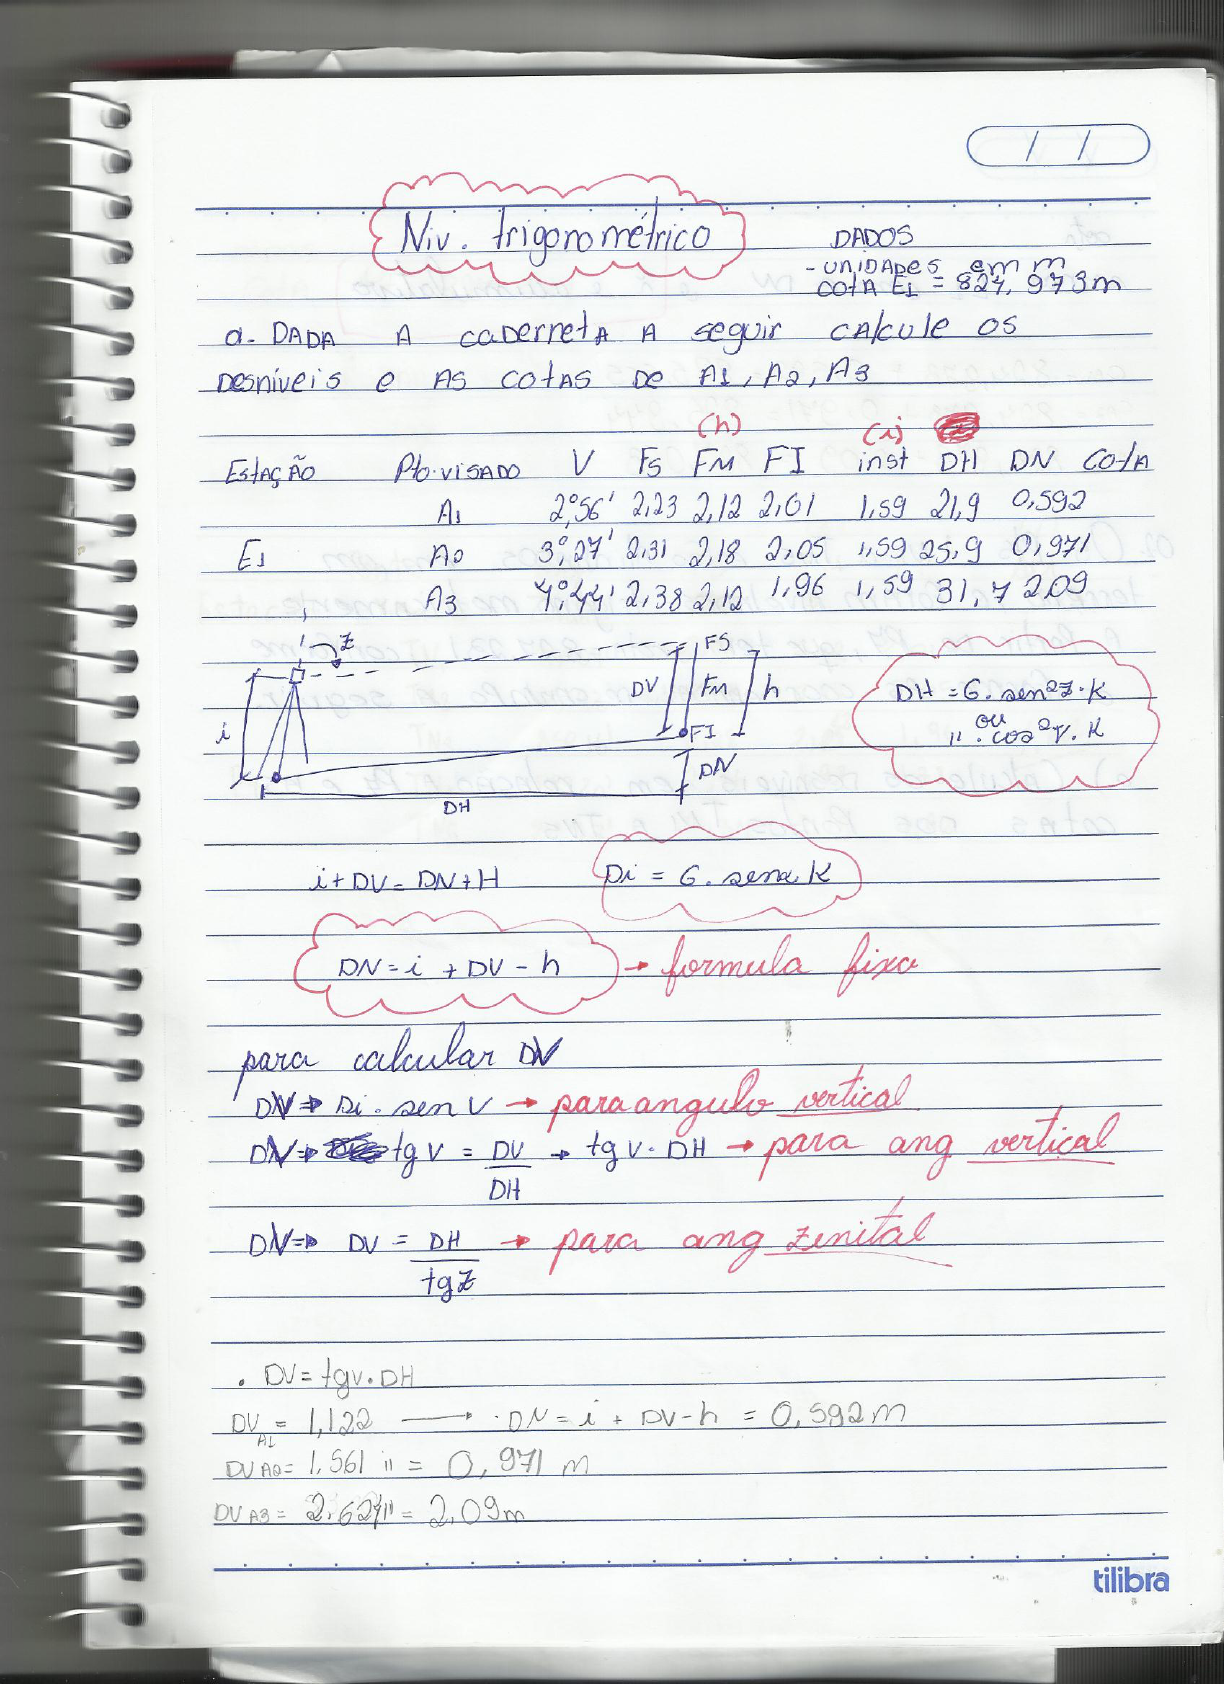 / /
Niv. trigonométrico
DADOS
- UNIDADES em m
COTA E1 = 827,973m
a. DADA A caderneta A seguir CAlcule os
DesNíveis e AS COTAS DE A1, A2, A3
(h) (i)
Estação Pto.visado V FS FM FI inst DH DN COTA
A1 2°56' 2,23 2,12 2,01 1,59 21,9 0,592
E1 A2 3°27' 2,31 2,18 2,05 1,59 25,9 0,971
A3 4°44' 2,38 2,12 1,96 1,59 31,7 2,09
z FS
DV FM h
i FI
DN
DH
DH = G. sen²Z.K
ou
". cos²V.K
i+DV = DN+H Di = G. senα.K
DN = i + DV - h → formula fixa
para calcular DV
DV ⇒ Di. sen V → para angulo vertical
DV ⇒ tg V = DV/DH → tg V. DH → para ang vertical
DV ⇒ DV = DH/tgZ → para ang zenital
. DV = tgv. DH
DV A1 = 1,122 → .DN = i + DV-h = 0,592m
DV A2 = 1,561 " = 0,971 m
DV A3 = 2,624 " = 2,09m
tilibra